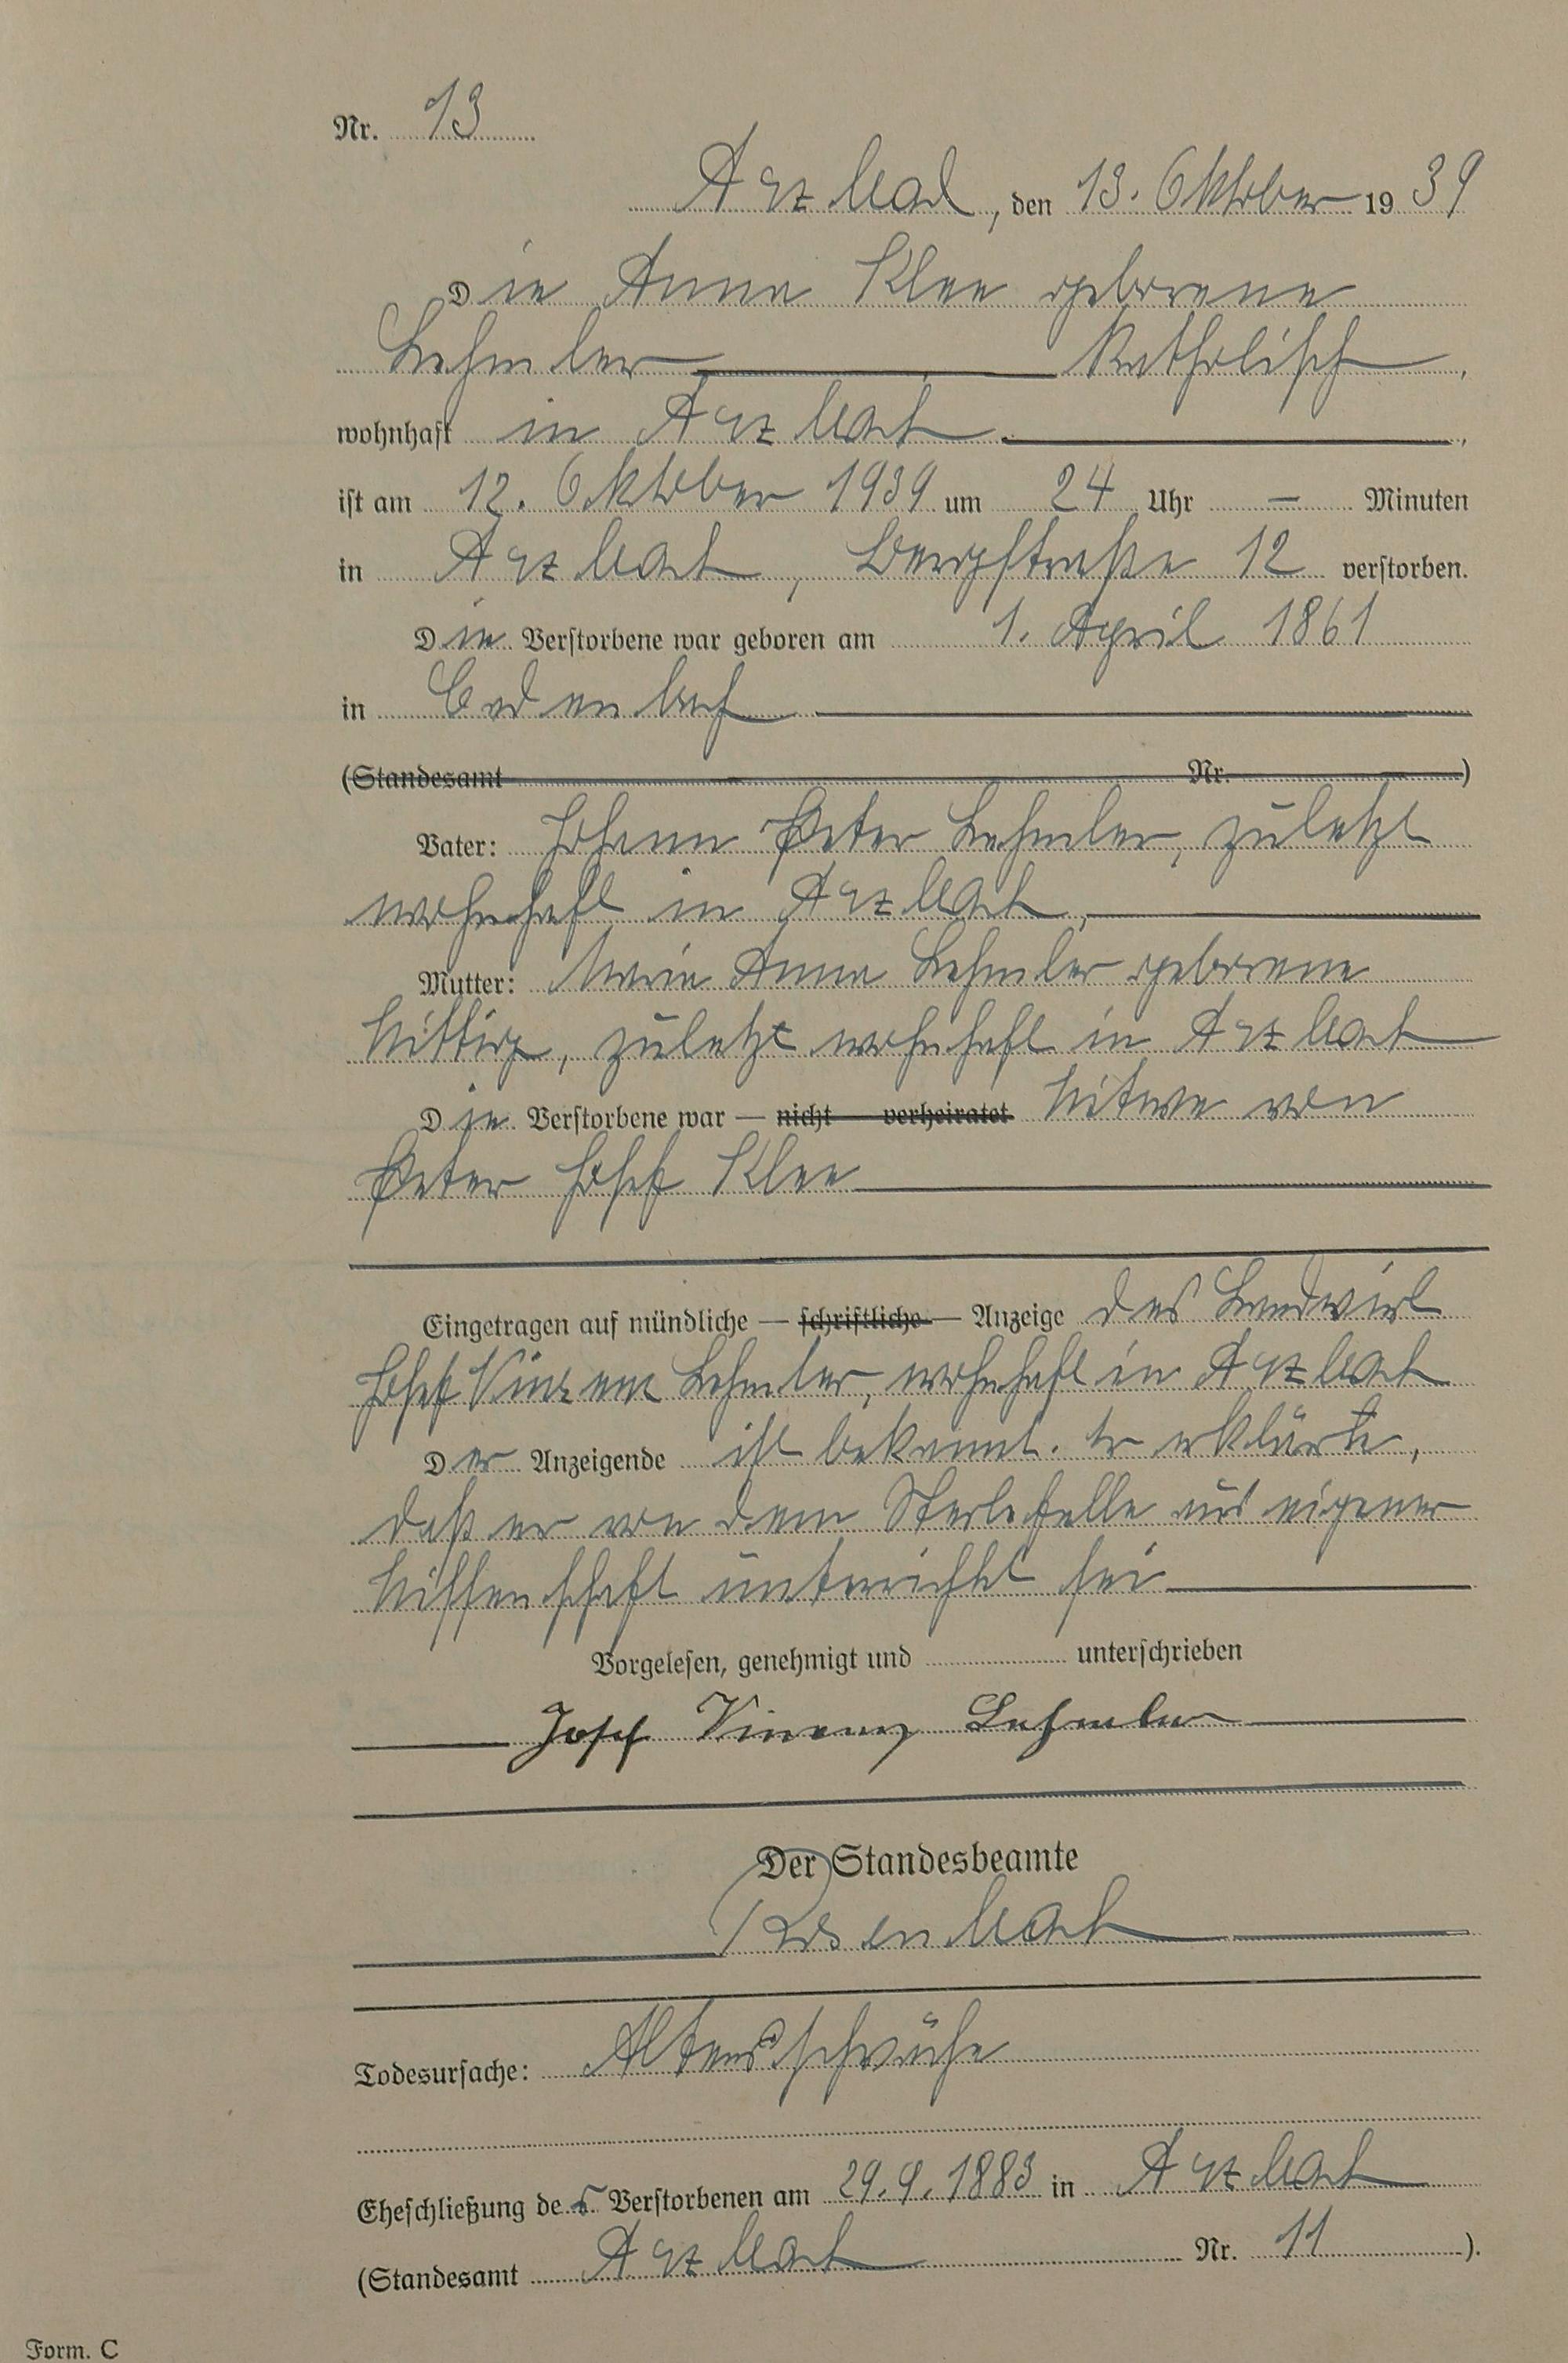 Nr. 13
Arzbach, den 13. Oktober 1939
Die Anna Klee geborene
Lehmler katholisch,
wohnhaft in Arzbach,
ist am 12. Oktober 1939 um 24 Uhr — Minuten
in Arzbach, Bergstraße 12 verstorben.
Die Verstorbene war geboren am 1. April 1861
in
(Standesamt Nr. )
Vater: Johann Peter Lehmler, zuletzt
wohnhaft in Arzbach,
Mutter: Maria Anna Lehmler geborene
Wittig, zuletzt wohnhaft in Arzbach
Die Verstorbene war — nicht verheiratet Witwe von
Peter Josef Klee
Eingetragen auf mündliche — schriftliche — Anzeige des Landwirt
Josef Vinzenz Lehmler, wohnhaft in Arzbach
Der Anzeigende ist bekannt. Er erklärte,
daß er von dem Sterbefalle aus eigener
Wissenschaft unterrichtet sei
Vorgelesen, genehmigt und unterschrieben
Josef Vinzenz Lehmler
Der Standesbeamte
Rosenbach
Todesursache: Altersschwäche
Eheschließung der Verstorbenen am 29.9.1883 in Arzbach
(Standesamt Arzbach Nr. 11 ).
Form. C